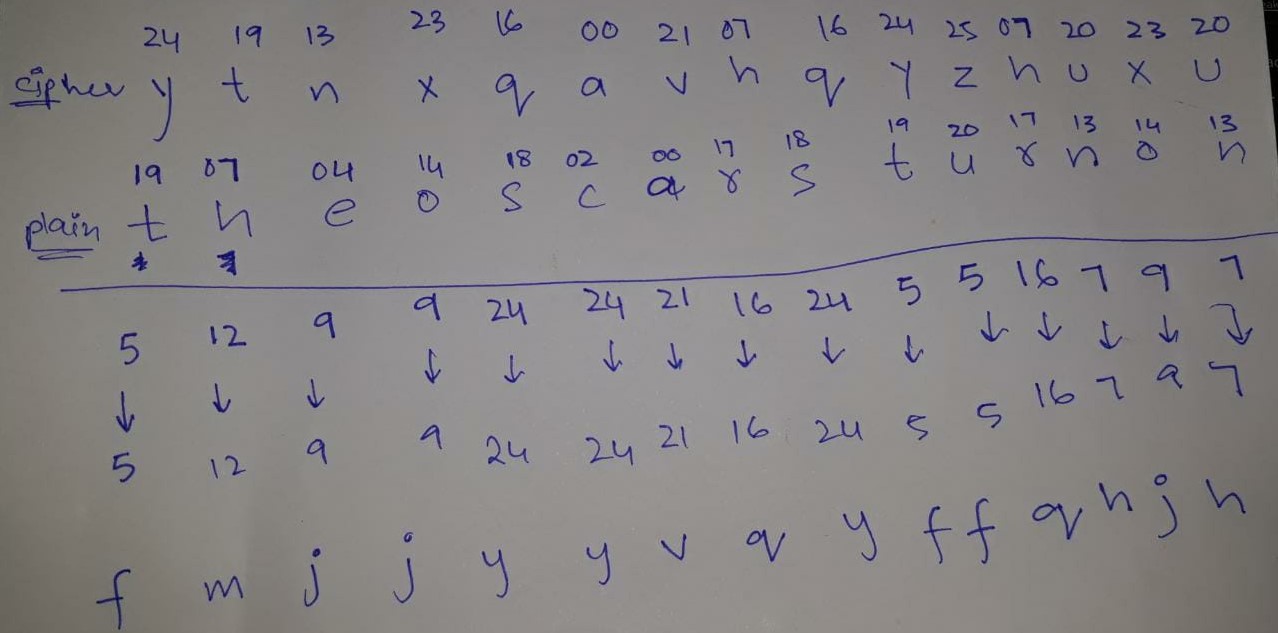 24 19 13 23 16 00 21 07 16 24 25 07 20 23 20
cipher y t n x q a v h q y z h u x u
19 07 04 14 18 02 00 17 18 19 20 17 13 14 13
plain t h e o s c a r s t u r n o n
5 12 9 9 24 24 21 16 24 5 5 16 7 9 7
↓ ↓ ↓ ↓ ↓ ↓ ↓ ↓ ↓ ↓ ↓ ↓ ↓ ↓ ↓
5 12 9 9 24 24 21 16 24 5 5 16 7 9 7
f m j j y y v q y f f q h j h